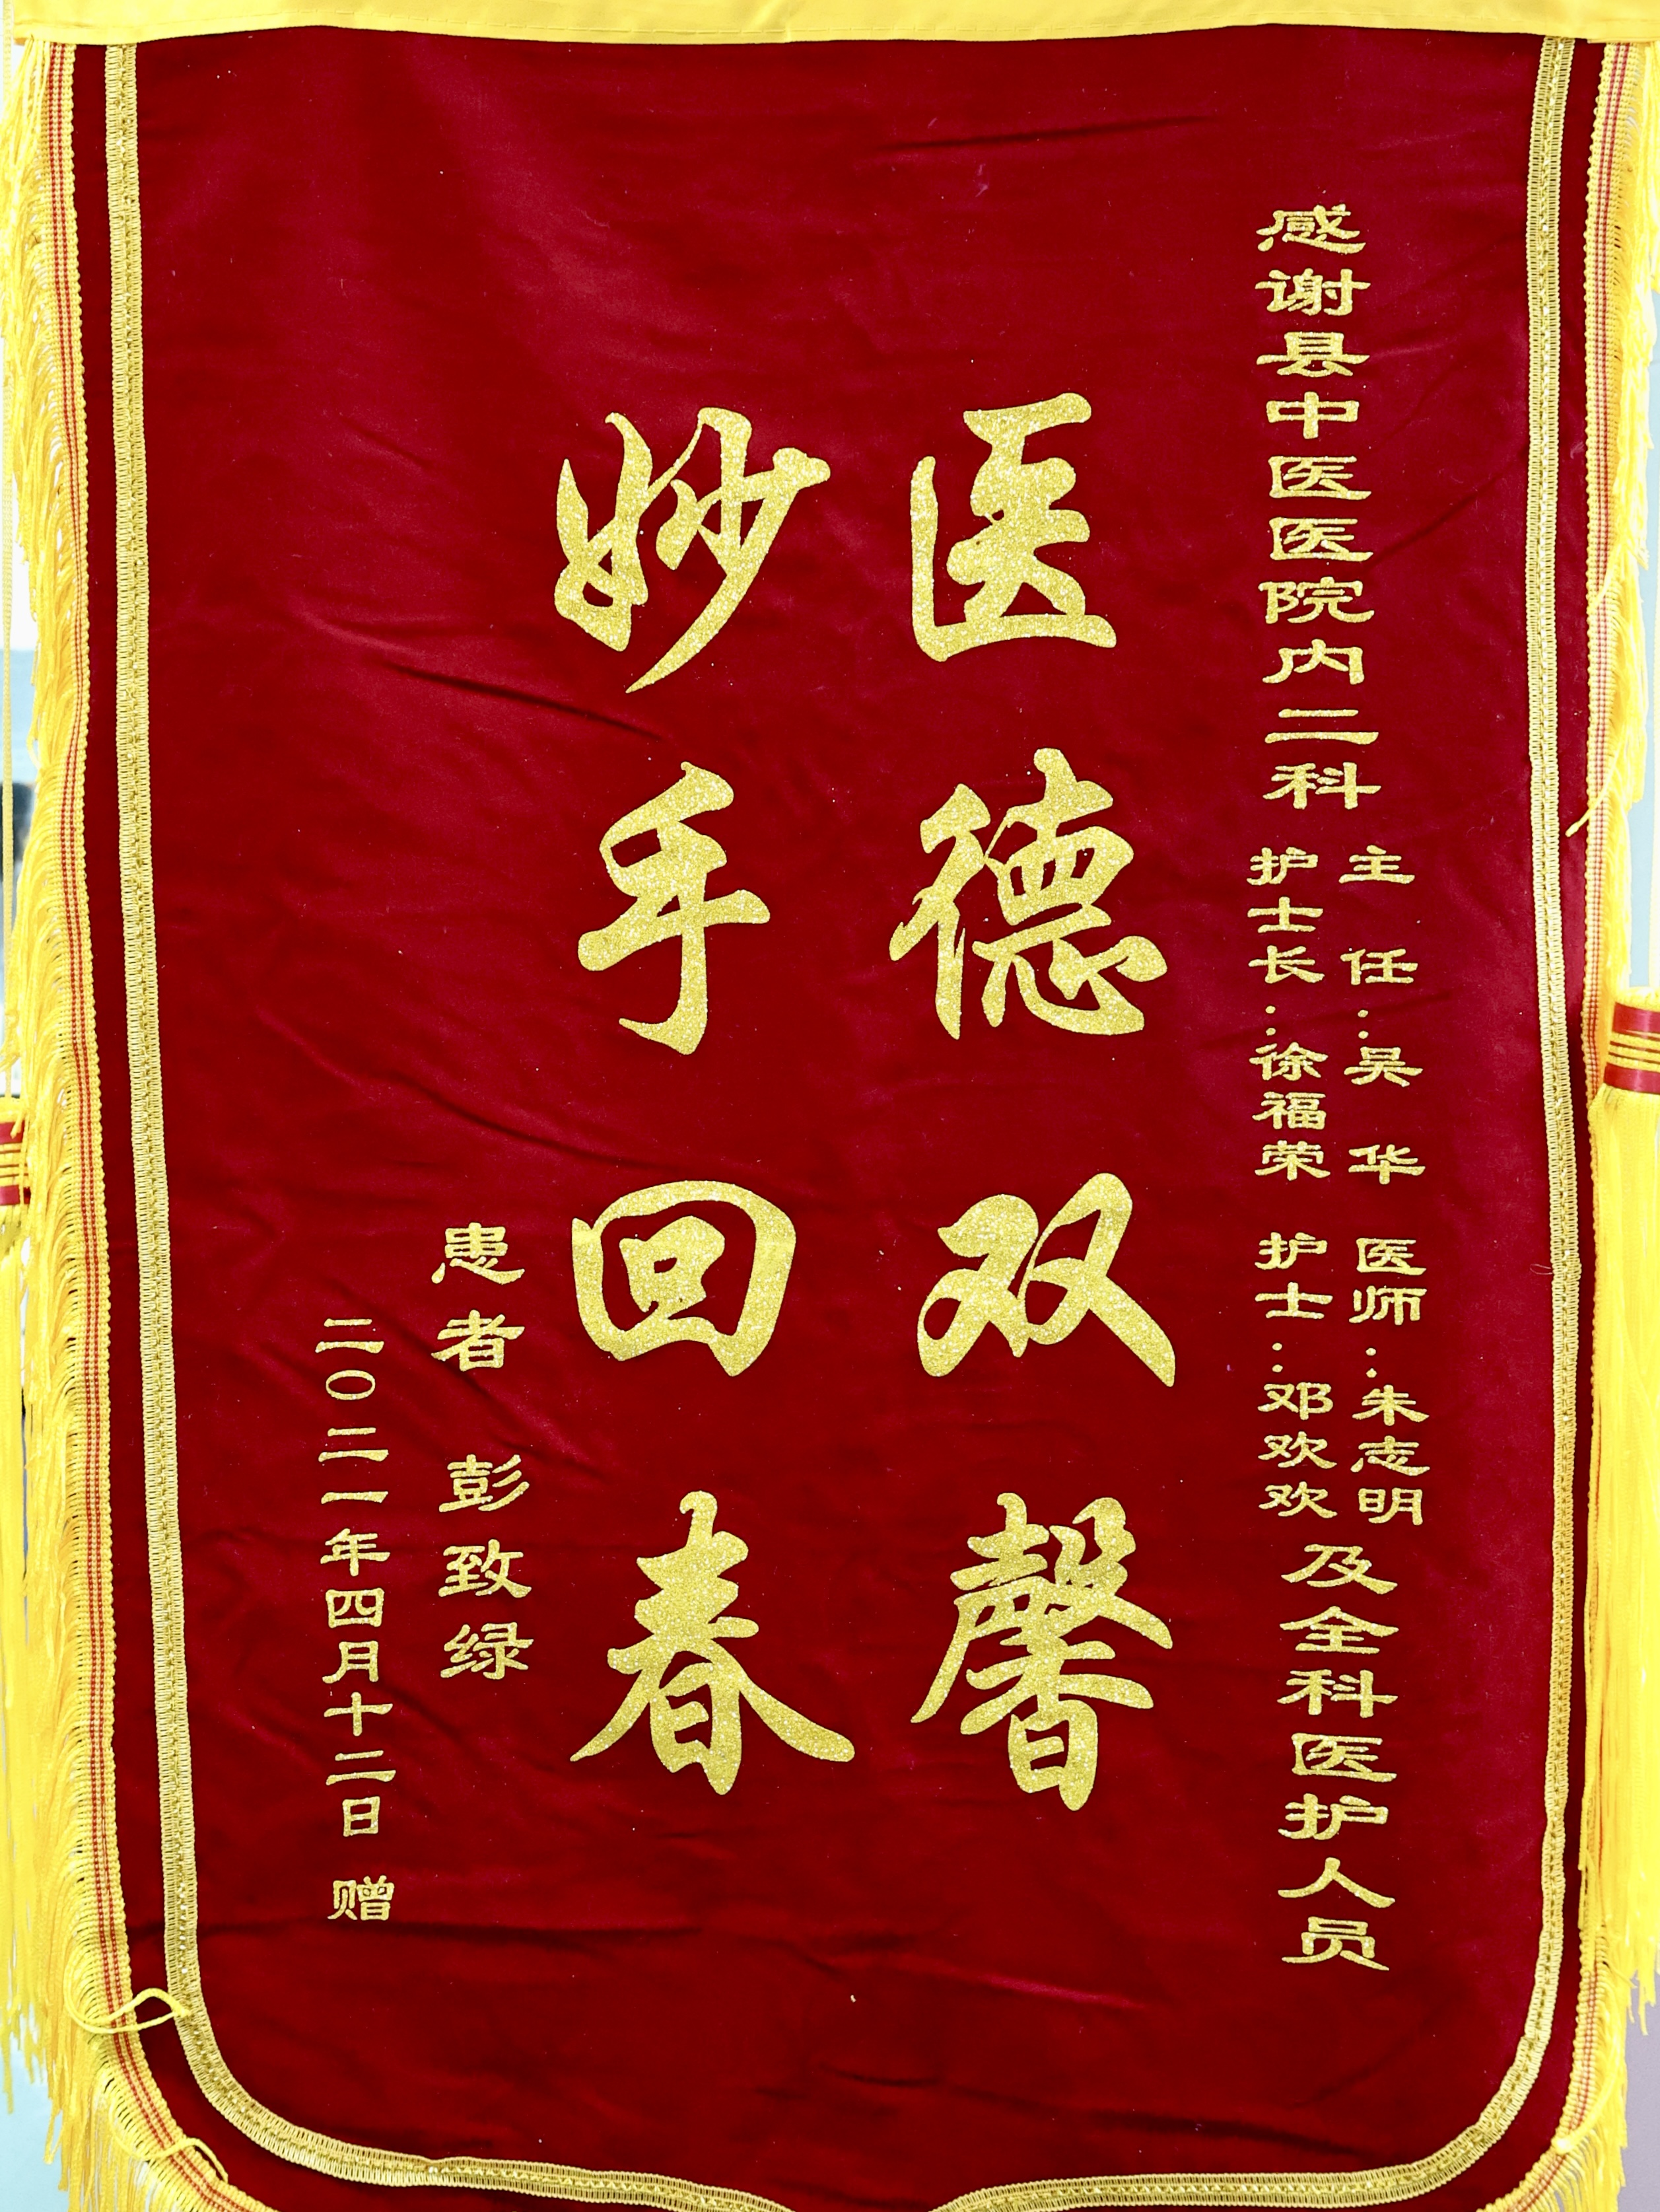 感谢县中医医院内二科
主任：吴华 医师：朱志明
护士长：徐福荣 护士：邓欢欢
及全科医护人员
医德双馨
妙手回春
患者 彭致绿
二〇二一年四月十二日 赠